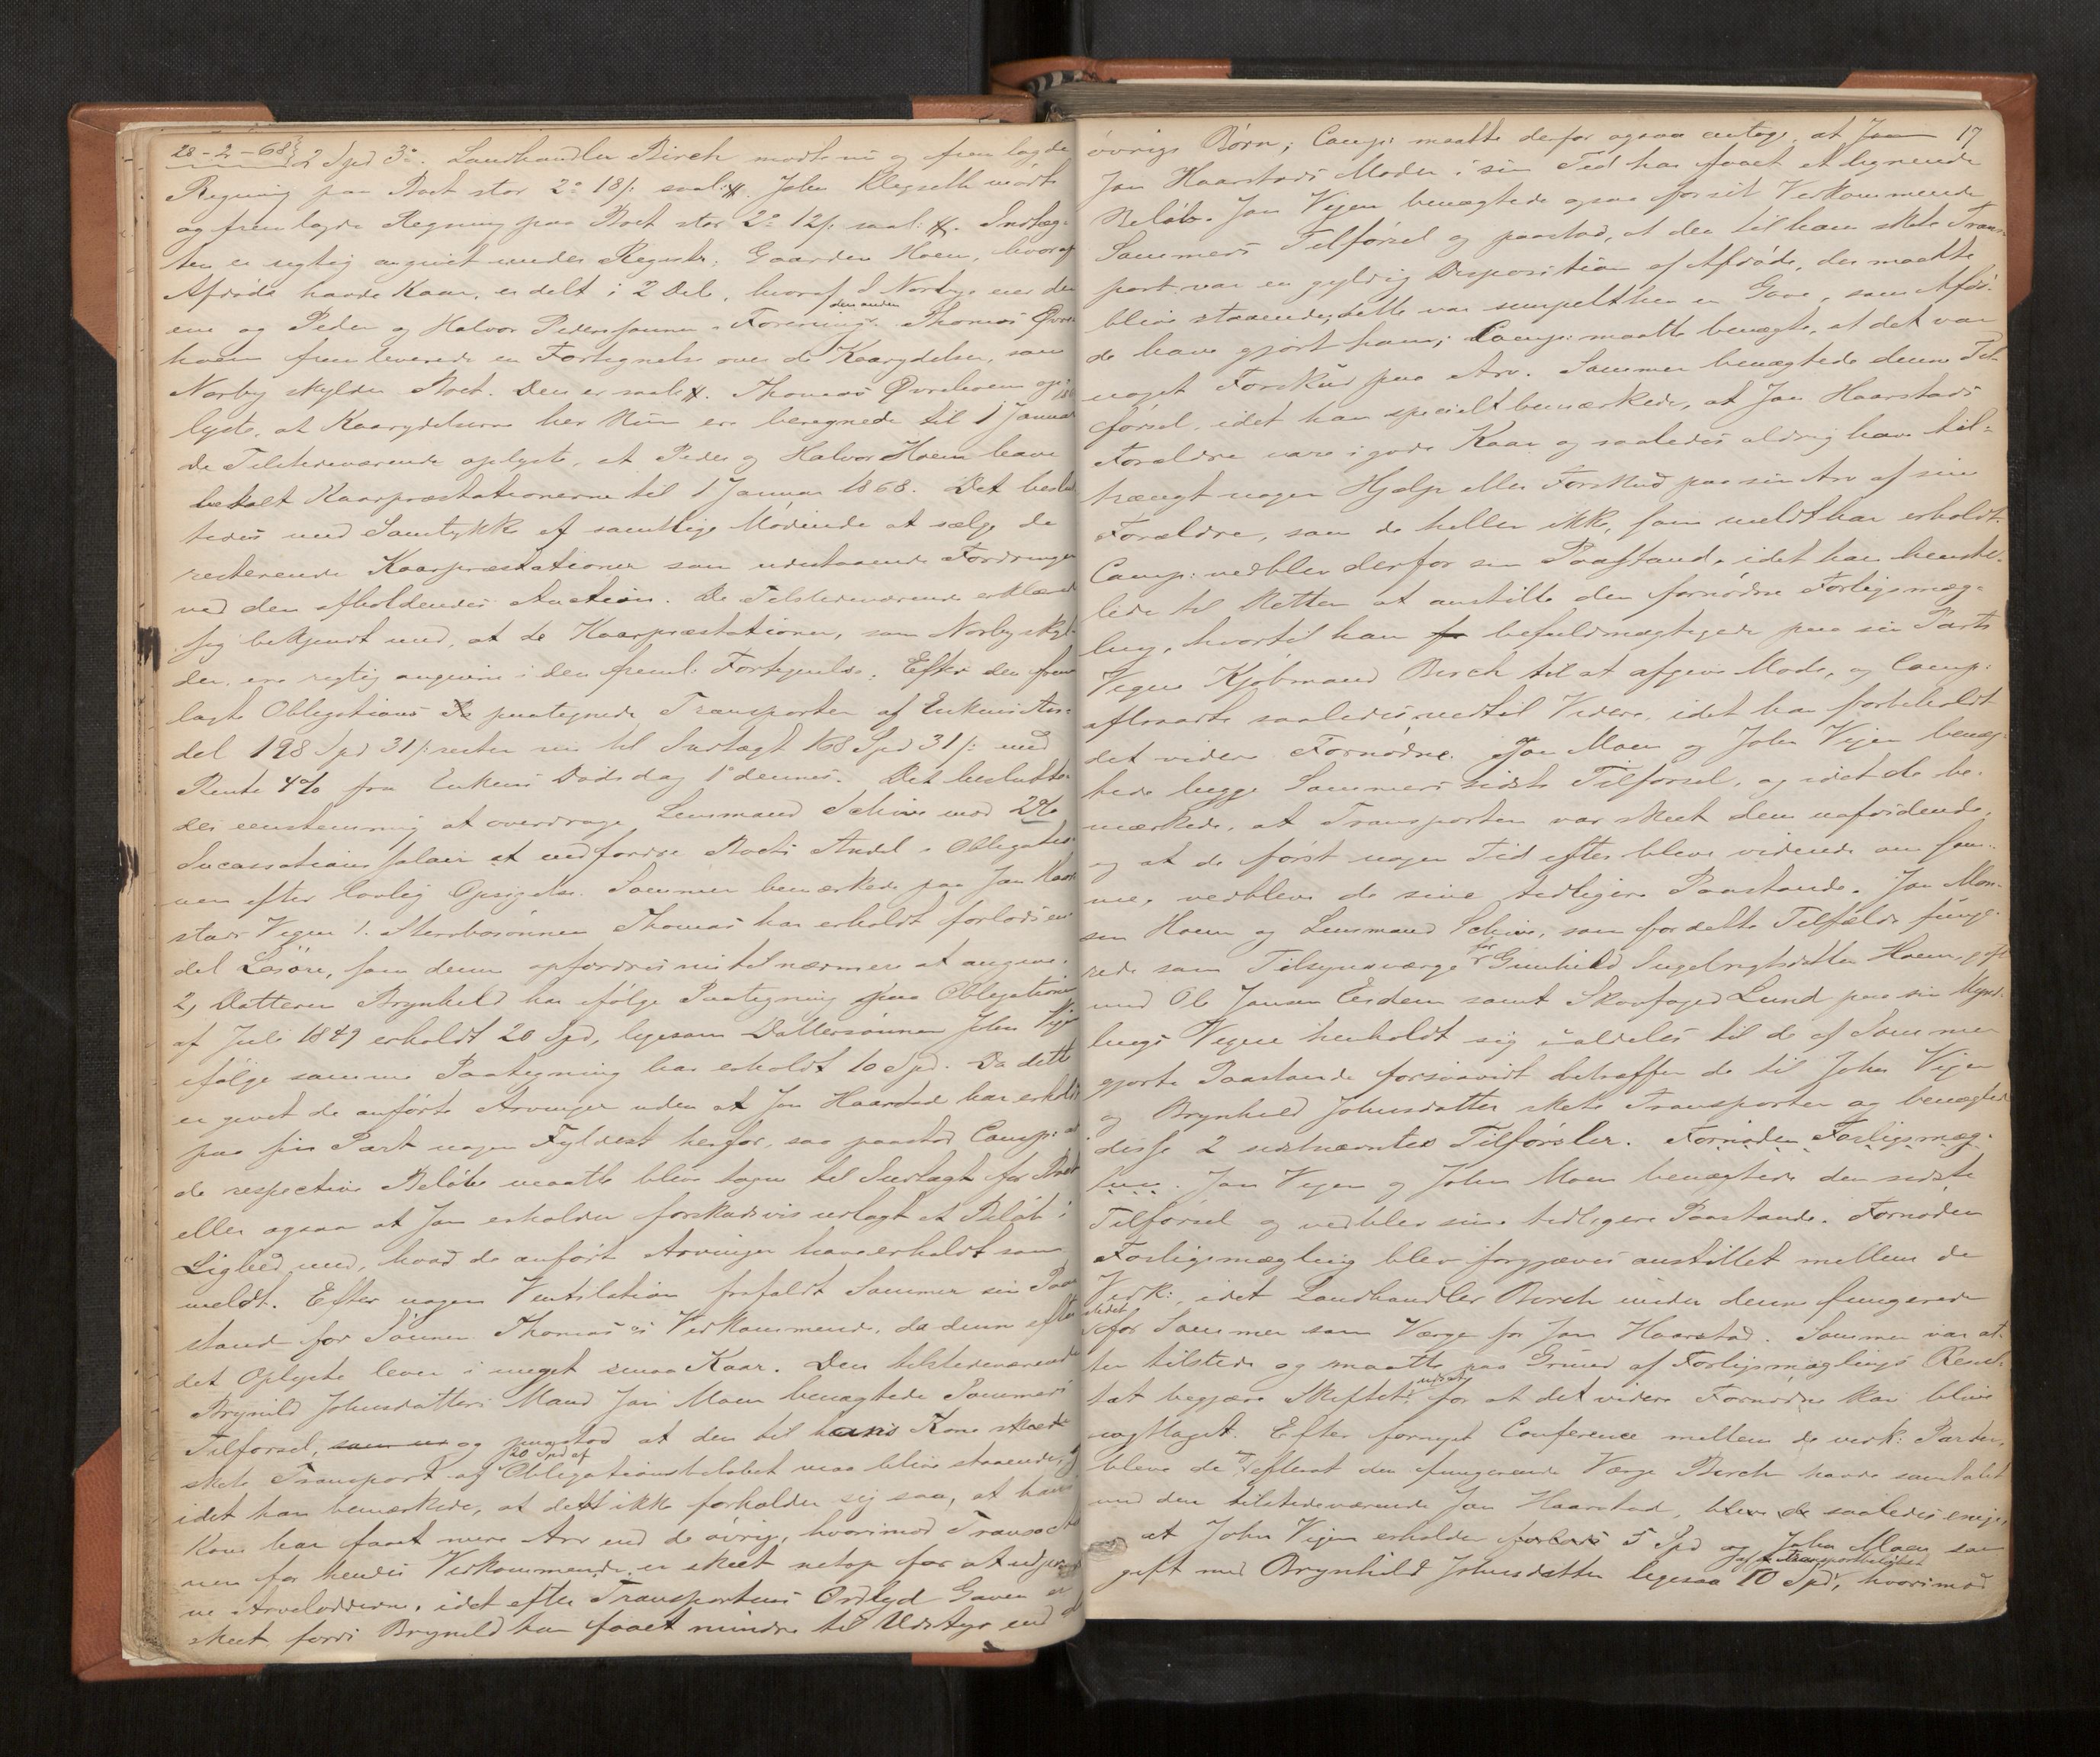 28-2-68 2 Spd 3°. Landhandler Birch mødte nu og fremlagde
Regning paa Boet stor 2° 18/: saal: #. John Klegseth mødte
og fremlagde Regning paa Boet stor 2° 12/: saal: #. Indtæg-
ten er rigtig angivet under Registr: Gaarden Hoem, hvoraf
Afdøde havde Kaar, er delt i 2 Dele, hvoraf S. Nørby eier den
ene og Peder og Halvor Pederssønner i Forening den anden. Thomas Øvre-
hoem fremleverede en Fortegnelse over de Kaarydelser, som
Nørby skylder Boet. Den er saal #. Thomas Øvrehoem op-
lyste, at Kaarydelserne her kun ere beregnede til 1 Januar
De Tilstedeværende oplyste, at Peder og Halvor Hoem have
betalt Kaarpræstationerne til 1 Januar 1868. Det beslut-
tedes med Samtykke af samtlige Mødende at sælge de
resterende Kaarpræstationer som udestaaende Fordringer
ved den afholdendes Auction. De Tilstedeværende erklærede
sig bekjendt med, at de Kaarpræstationer, som Nørby skyl-
der, ere rigtig angivne i den freml: Fortegnelse. Efter den frem
lagte Obligations paategnede Transporter af Enkens An-
del 198 Spd 31/: rester nu til Indtægt 168 Spd 31/: med
Rente 4% fra Enkens Dødsdag 1° dennes. Det beslutte-
des eenstemmig at overdrage Lensmand Schive mod 2%
Incassations salair at indfordre Boets Andel i Obligatio-
nen efter lovlig Opsigelse. Sommer bemærkede paa Jon Haar-
stads Vegne 1. Stervbosønnen Thomas har erholdt forlods en
del Løsøre, som denne opfordres nu til nærmere at angive.
2, Datteren Brynhild har ifølge Paategning paa Obligationen
af Juli 1849 erholdt 20 Spd, ligesom Dattersønnen John Vejen
ifølge samme Paategning har erholdt 10 Spd. Da dette
er givet de anførte Arvinger uden at Jon Haarstad har erholdt
paa sin Part nogen Fyldest herfor, saa paastod Comp: at
de respective Beløbe maatte blive tagne til Indtægt for Boet
eller ogsaa at Jon erholder forskudsvis udlagt et Beløb i
Lighed med, hvad de anførte Arvinger have erholdt som
meldt. Efter nogen Ventilation frafaldt Sommer sin Paa-
stand for Sønnen Thomas's Vedkommende, da denne efter
det Oplyste lever i meget smaa Kaar. Den tilstedeværende
Brynild Johnsdatters Mand Jon Moen benægtede Sommers
Tilførsel, og paastod at den til hans Kone
skete Transport af 20 Spd af Obligationsbeløbet maa blive staaende,
idet han bemærkede, at dett ikke forholder sig saa, at hans
Kone har faaet mere Arv end de øvrige, hvorimod Transactio-
nen for hendes Vedkommende er skeet netop for at udjæv-
ne Arvelodderne, idet efter Transportens Ordlyd Gaven er
skeet fordi Brynild har faaet mindre til Udstyr end de
17
øvrige Børn; Comp: maatte derfor ogsaa antage, at
Jon Haarstads Moder i sin Tid har faaet et lignende
Beløb. Jon Vejen benægtede ogsaa for sit Vedkommende
Sommers Tilførsel og paastod, at den til ham skete Trans-
port var en gyldig Disposition af Afdøde, der maatte
blive staaende; dette var simpelthen en Gave, som Afdø-
de have gjort ham; Comp: maatte benægte, at det var
noget Forskud paa Arv. Sommer benægtede denne Til-
førsel, idet han specielt bemærkede, at Jon Haarstads
Forældre vare i gode Kaar og saaledes aldrig have til-
trængt nogen Hjælp eller Forskud paa sin Arv af sine
Forældre, som de heller ikke, som meldt har erholdt.
Comp: vedblev derfor sin Paastand, idet han henstil-
lede til Retten at anstille den fornødne Forligsmæg-
ling, hvortil han befuldmægtigede paa sin Parts
Vegne Kjøbmand Birch til at afgive Møde, og Comp:
afløvarte saaledes indtil Videre, idet han forbeholdt
det videre Fornødne. Jon Moen og John Vejen benæg-
tede begge Sommers sidste Tilførsel, og idet de be-
mærkede, at Transporten var skeet dem uafvidende,
og at de først nogen Tid efter bleve vidende om sam-
me, vedbleve de sine tidligere Paastande. Jon Mon-
sen Hoem og Lensmand Schive, som for dette Tilfælde funge-
rede som Tilsynsværge for Gunhild Ingebrigtsdatter Hoem, gift
med Ole Jonsen Eidem samt Skovfoged Lund paa sin Mynd-
lings Vegne henholdt sig ialdeles til de af Sommer
gjorte Paastande forsaavidt betræffer de til John Vejen
og Brynhild Johnsdatter skete Transporter og benægted
disse 2 sidstnævntes Tilførsler. Fornøden Forligsmæg-
ling. Jon Vejen og John Moen benægtede den sidste
Tilførsel og vedblev sine tidligere Paastande. Fornøden
Forligsmægling blev forgjæves anstillet mellem de
Vedk:, idet Landhandler Birch under denne fungerede
istedet for Sommer som Værge for Jon Haarstad. Sommer var at-
ter tilstede og maatte paa Grund af Forligsmæglings Resul-
tat begjære Skiftet udsat, for at det videre Fornødne kan blive
iagttaget. Efter fornyet Conference mellem de vedk: Parter,
bleve de efterat den fungerende Værge Birch havde samtalet
med den tilstedeværende Jon Haarstad, saaledes enige,
at John Vejen erholder forlods 5 Spd og John Moen som
gift med Brynhild Johnsdatter ligesaa af Transportbeløbet 10 Spd, hvorimod